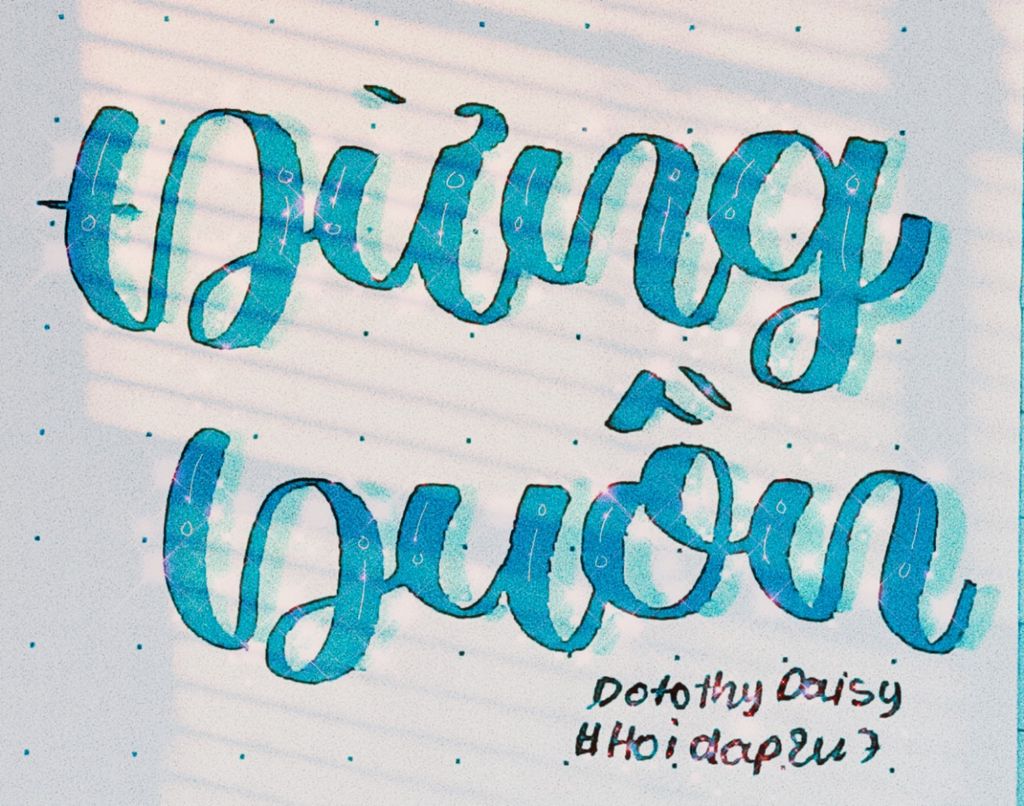 Đừng
buồn
Dotothy Daisy
#Hoidap247